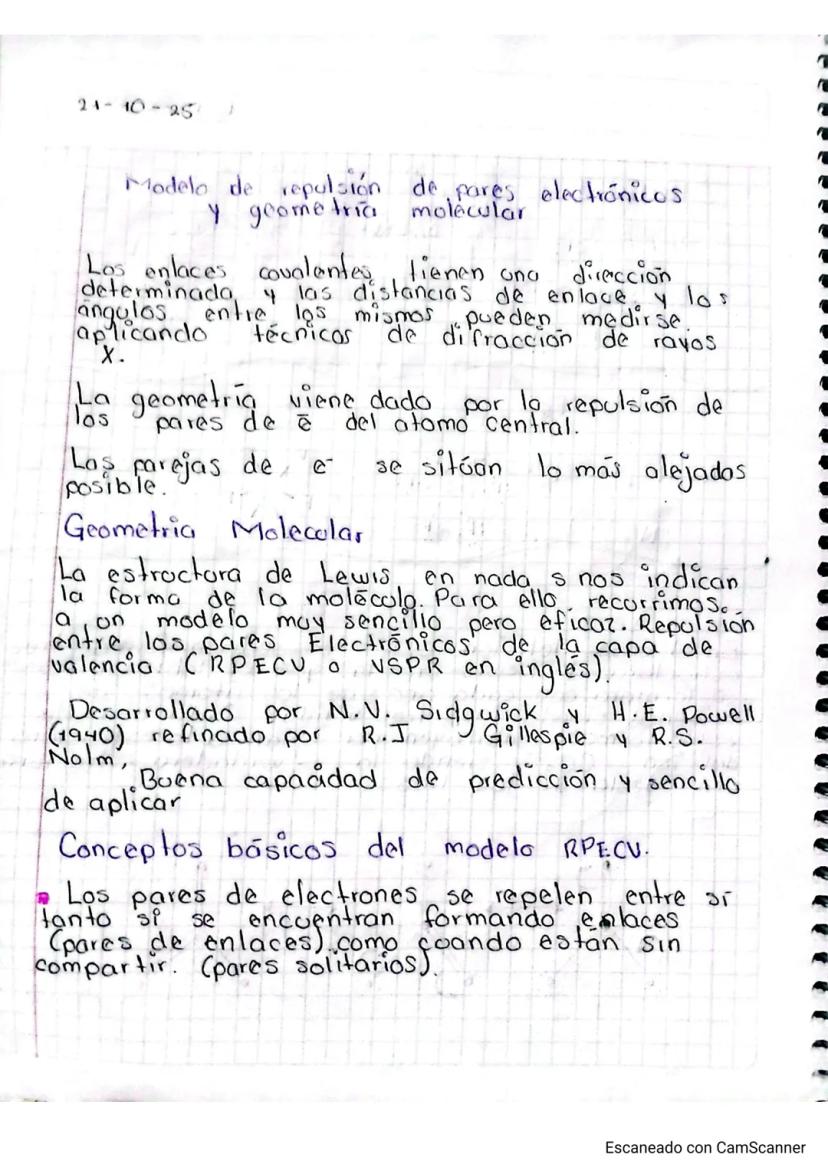 21-10-25
Modelo de repulsión de pares electrónicos
y geometría molecular
Los enlaces covalentes tienen una dirección
determinada y las distancias de enlace y los
ángulos entre los mismos pueden medirse
aplicando técnicas de difracción de rayos
X.
La geometría viene dado por la repulsión de
los pares de ē del atomo central.
Las parejas de e- se sitúan lo más alejados
posible.
Geometria Molecular
La estructura de Lewis en nada s nos indican
la forma de la molécula. Para ello recurrimos
a un modelo muy sencillo pero eficaz. Repulsión
entre los pares Electrónicos de la capa de
valencia (RPECV o VSPR en inglés).
Desarrollado por N.V. Sidgwick y H.E. Powell
(1940) refinado por R.J Gillespie y R.S.
Nolm,
Buena capacidad de predicción y sencillo
de aplicar
Conceptos básicos del modelo RPECV.
Los pares de electrones se repelen entre sí
tanto si se encuentran formando enlaces
(pares de enlaces) como cuando están sin
compartir. (pares solitarios).
Escaneado con CamScanner